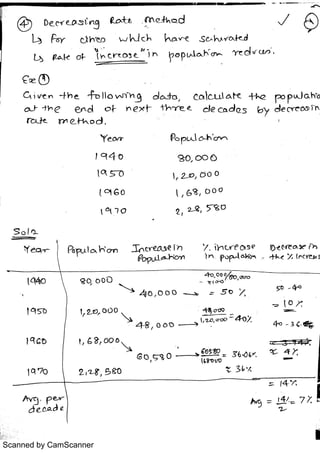 ④ Decreasing Rate method
↳ For cities which have saturated
↳ Rate of "increase" in population reduces.
Ex ①
Given the following data, calculate the populatio
at the end of next three decades by decreasin
rate method.
Year Population
1940 80,000
1950 1,20,000
1960 1,68,000
1970 2,28,580
Soln
Year Population Increase in Population % increase in population Decrease in the % Increas
1940 80,000
40,000 → 40,000/80,000 × 100 = 50 %
50 - 40
= 10 %
1950 1,20,000
48,000 → 48,000/1,20,000 = 40%
40 - 36
1960 1,68,000
≈ 4%
60,580 → 60580/168000 = 36.06%
≈ 36%
1970 2,28,580
= 14%
Avg. per decade
Avg = 14/2 = 7%
Scanned by CamScanner